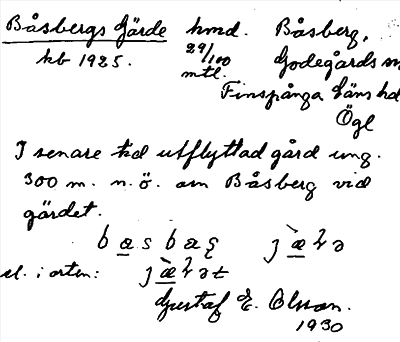 Båsbergs Gärde hmd. Båsberg,
kb 1925. 29/100 mtl. Godegårds sn
Finspånga läns hd
Ögl
I senare tid utflyttad gård ung.
300 m. n.ö. om Båsberg vid
gärdet.
el. i orten:
Gustaf E. Olsson.
1930